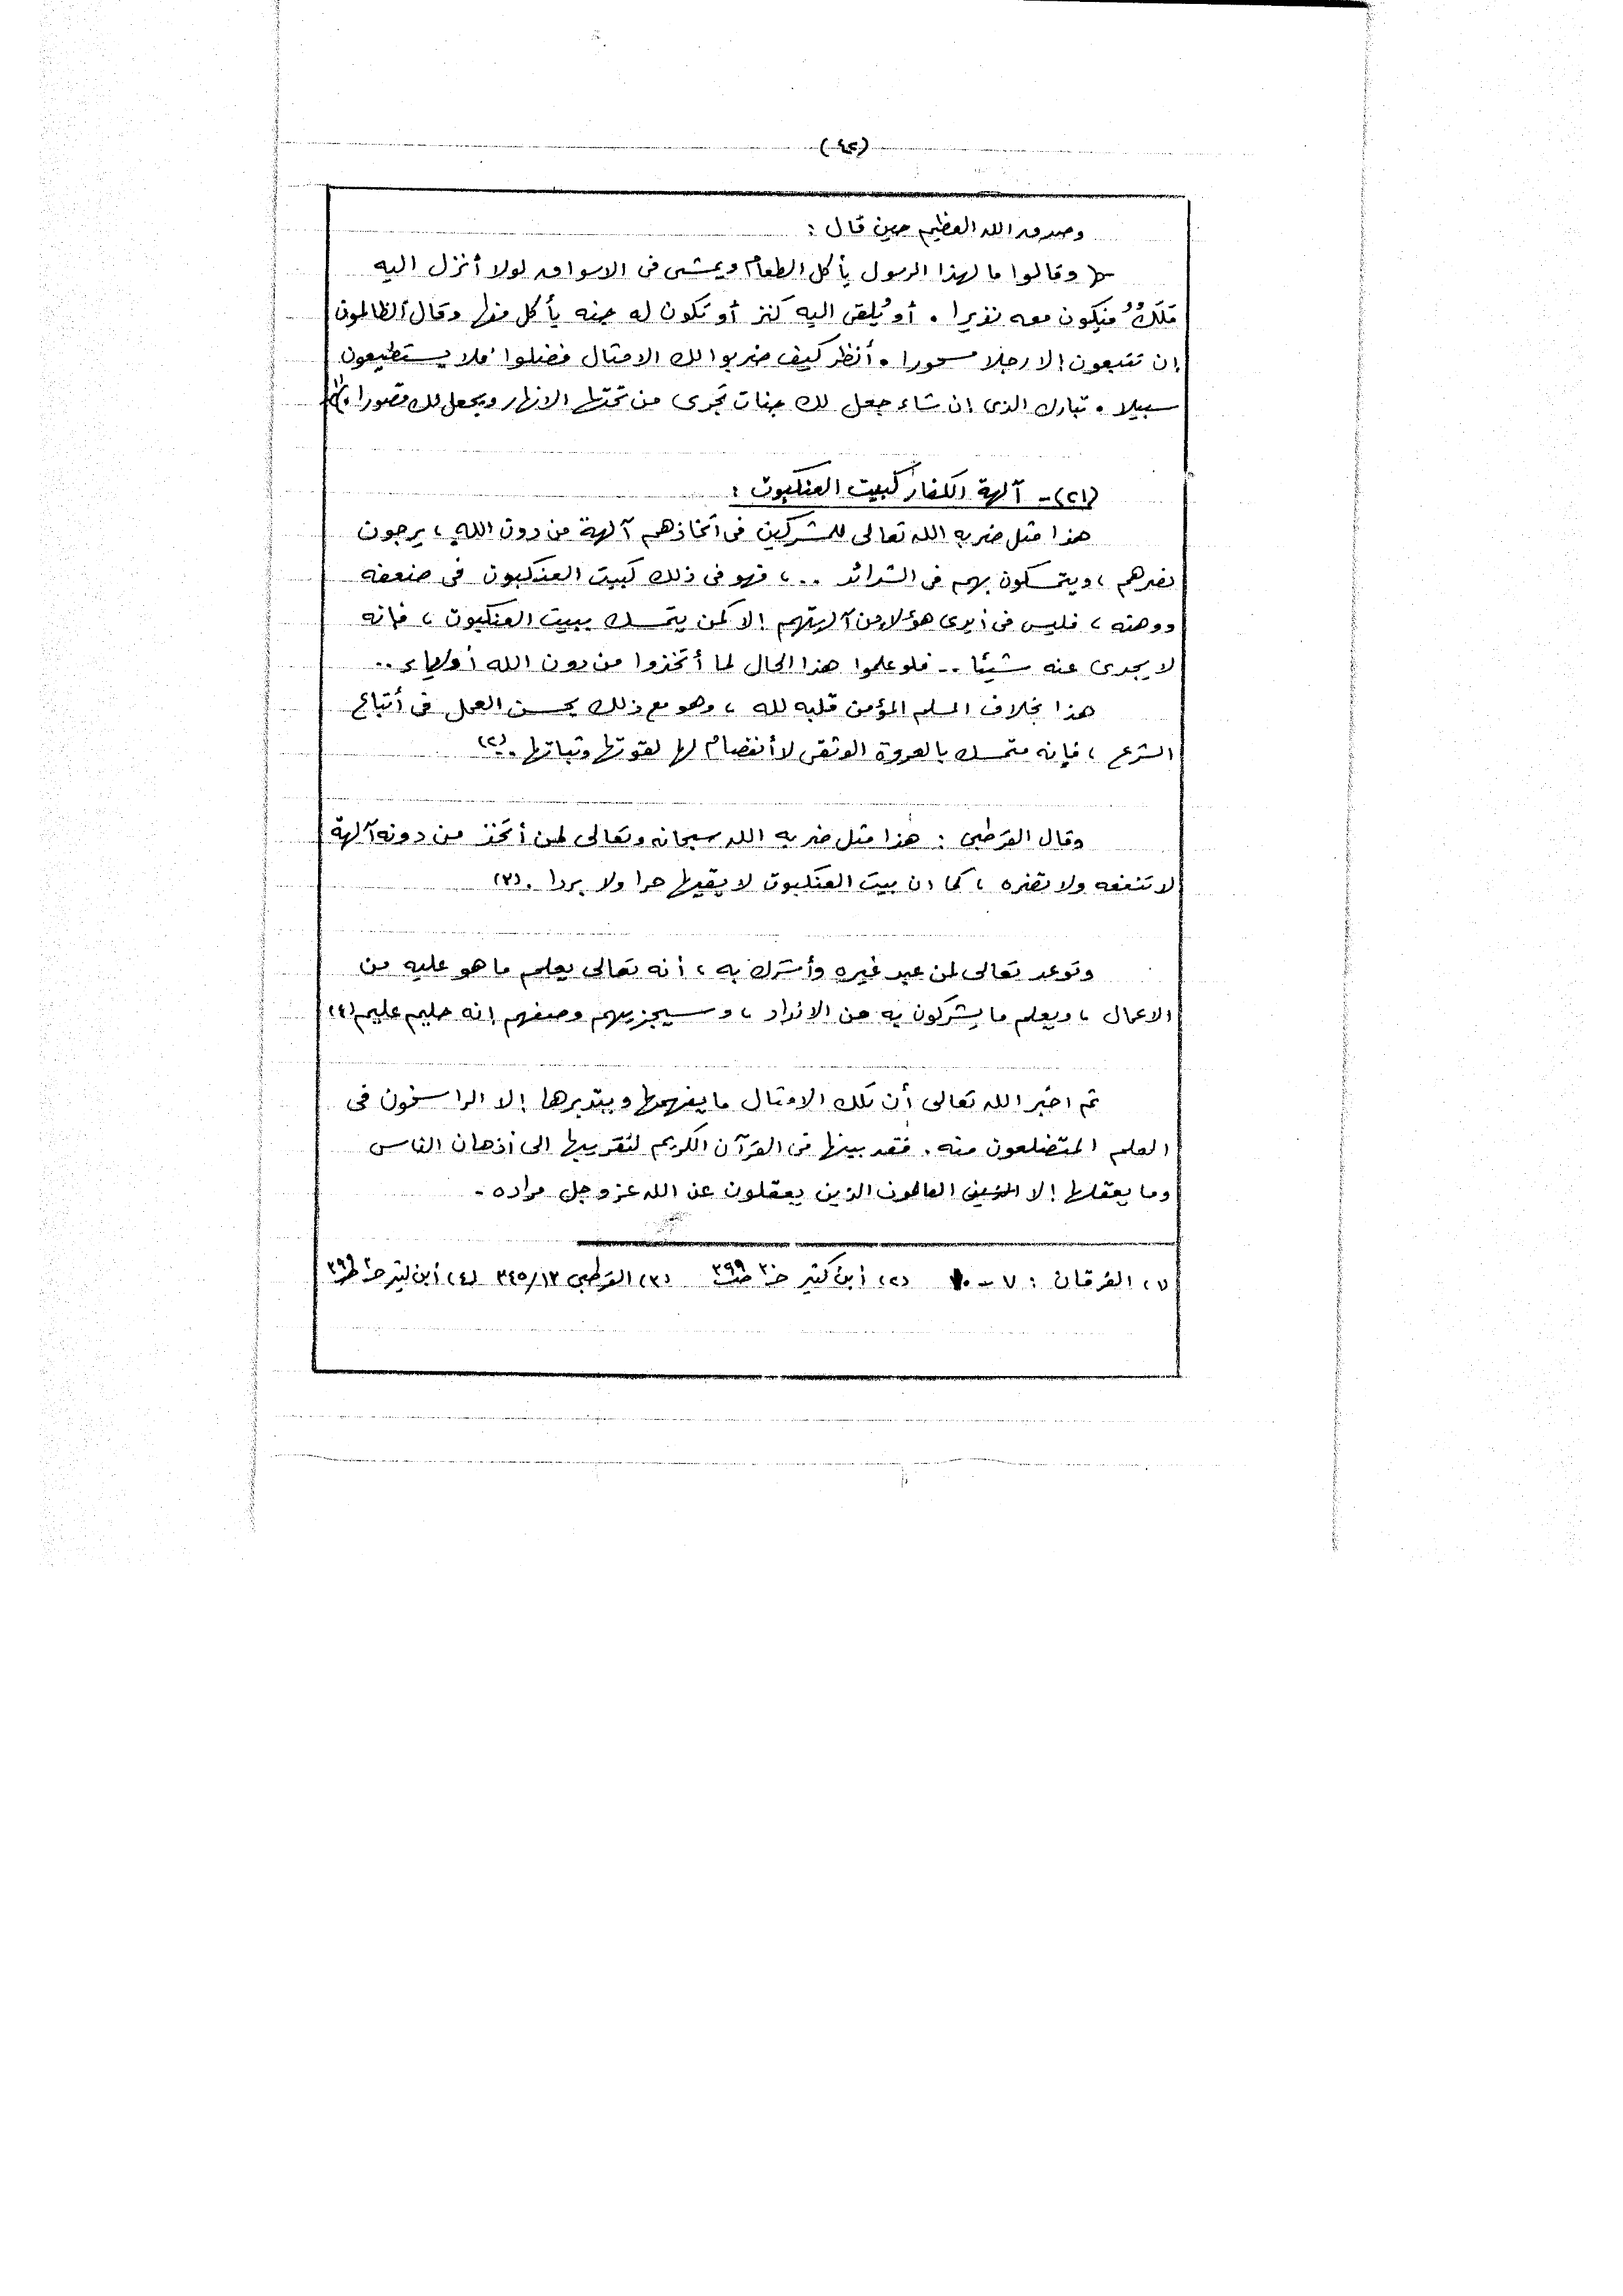 (٤٢)
وصدق الله العظيم حين قال :
وقالوا ما لهذا الرسول يأكل الطعام ويمشى فى الاسواق لولا أنزل اليه
مَلَكٌ فيكون معه نذيرا . أو يُلقى اليه كنز أو تكون له جنه يأكل منها وقال الظالمون
إن تتبعون إلا رجلا مسحورا . أنظر كيف ضربوا لك الامثال فضلوا فلا يستطيعون
سبيلا . تبارك الذى إن شاء جعل لك جنات تجرى من تحتها الانهار ويجعل لك قصورا . (١)
(٢١) - آلهة الكفار كبيت العنكبوت :
هذا مثل ضربه الله تعالى للمشركين فى أتخاذهم آلهة من دون الله ، يرجون
نصرهم ، ويتمسكون بهم فى الشدائد .. ، فهو فى ذلك كبيت العنكبوت فى ضعفه
ووهنه ، فليس فى أيدى هؤلاء من آلهتهم إلا كمن يتمسك ببيت العنكبوت ، فإنه
لا يجدى عنه شيئا .. فلو علموا هذا الحال لما أتخذوا من دون الله أولياء ..
هذا بخلاف المسلم المؤمن قلبه لله ، وهو مع ذلك يحسن العمل فى أتباع
الشرع ، فإنه متمسك بالعروة الوثقى لا أنفصام لها لقوتها وثباتها . (٢)
وقال القرطبى : هذا مثل ضربه الله سبحانه وتعالى لمن أتخذ من دونه آلهة
لا تنفعه ولا تضره ، كما ان بيت العنكبوت لا يقيها حرا ولا بردا . (٣)
وتوعد تعالى لمن عبد غيره وأشرك به ، أنه تعالى يعلم ما هو عليه من
الاعمال ، ويعلم ما يشركون به من الانداد ، وسيجزيهم وصفهم إنه حليم عليم (٤)
ثم اخبر الله تعالى أن تلك الامثال ما يفهمها ويتدبرها إلا الراسخون فى
العلم المتضلعون منه . فقد بينها فى القرآن الكريم لتقريبها الى أذهان الناس
وما يعقلها إلا العالمون الذين يعقلون عن الله عز وجل مراده .
(١) الفرقان : ٧ - ١٠ (٢) أبن كثير حـ٣ صـ٣٩٩ (٣) القرطبى ٣٤٥/١٣ (٤) أبن كثير حـ٣